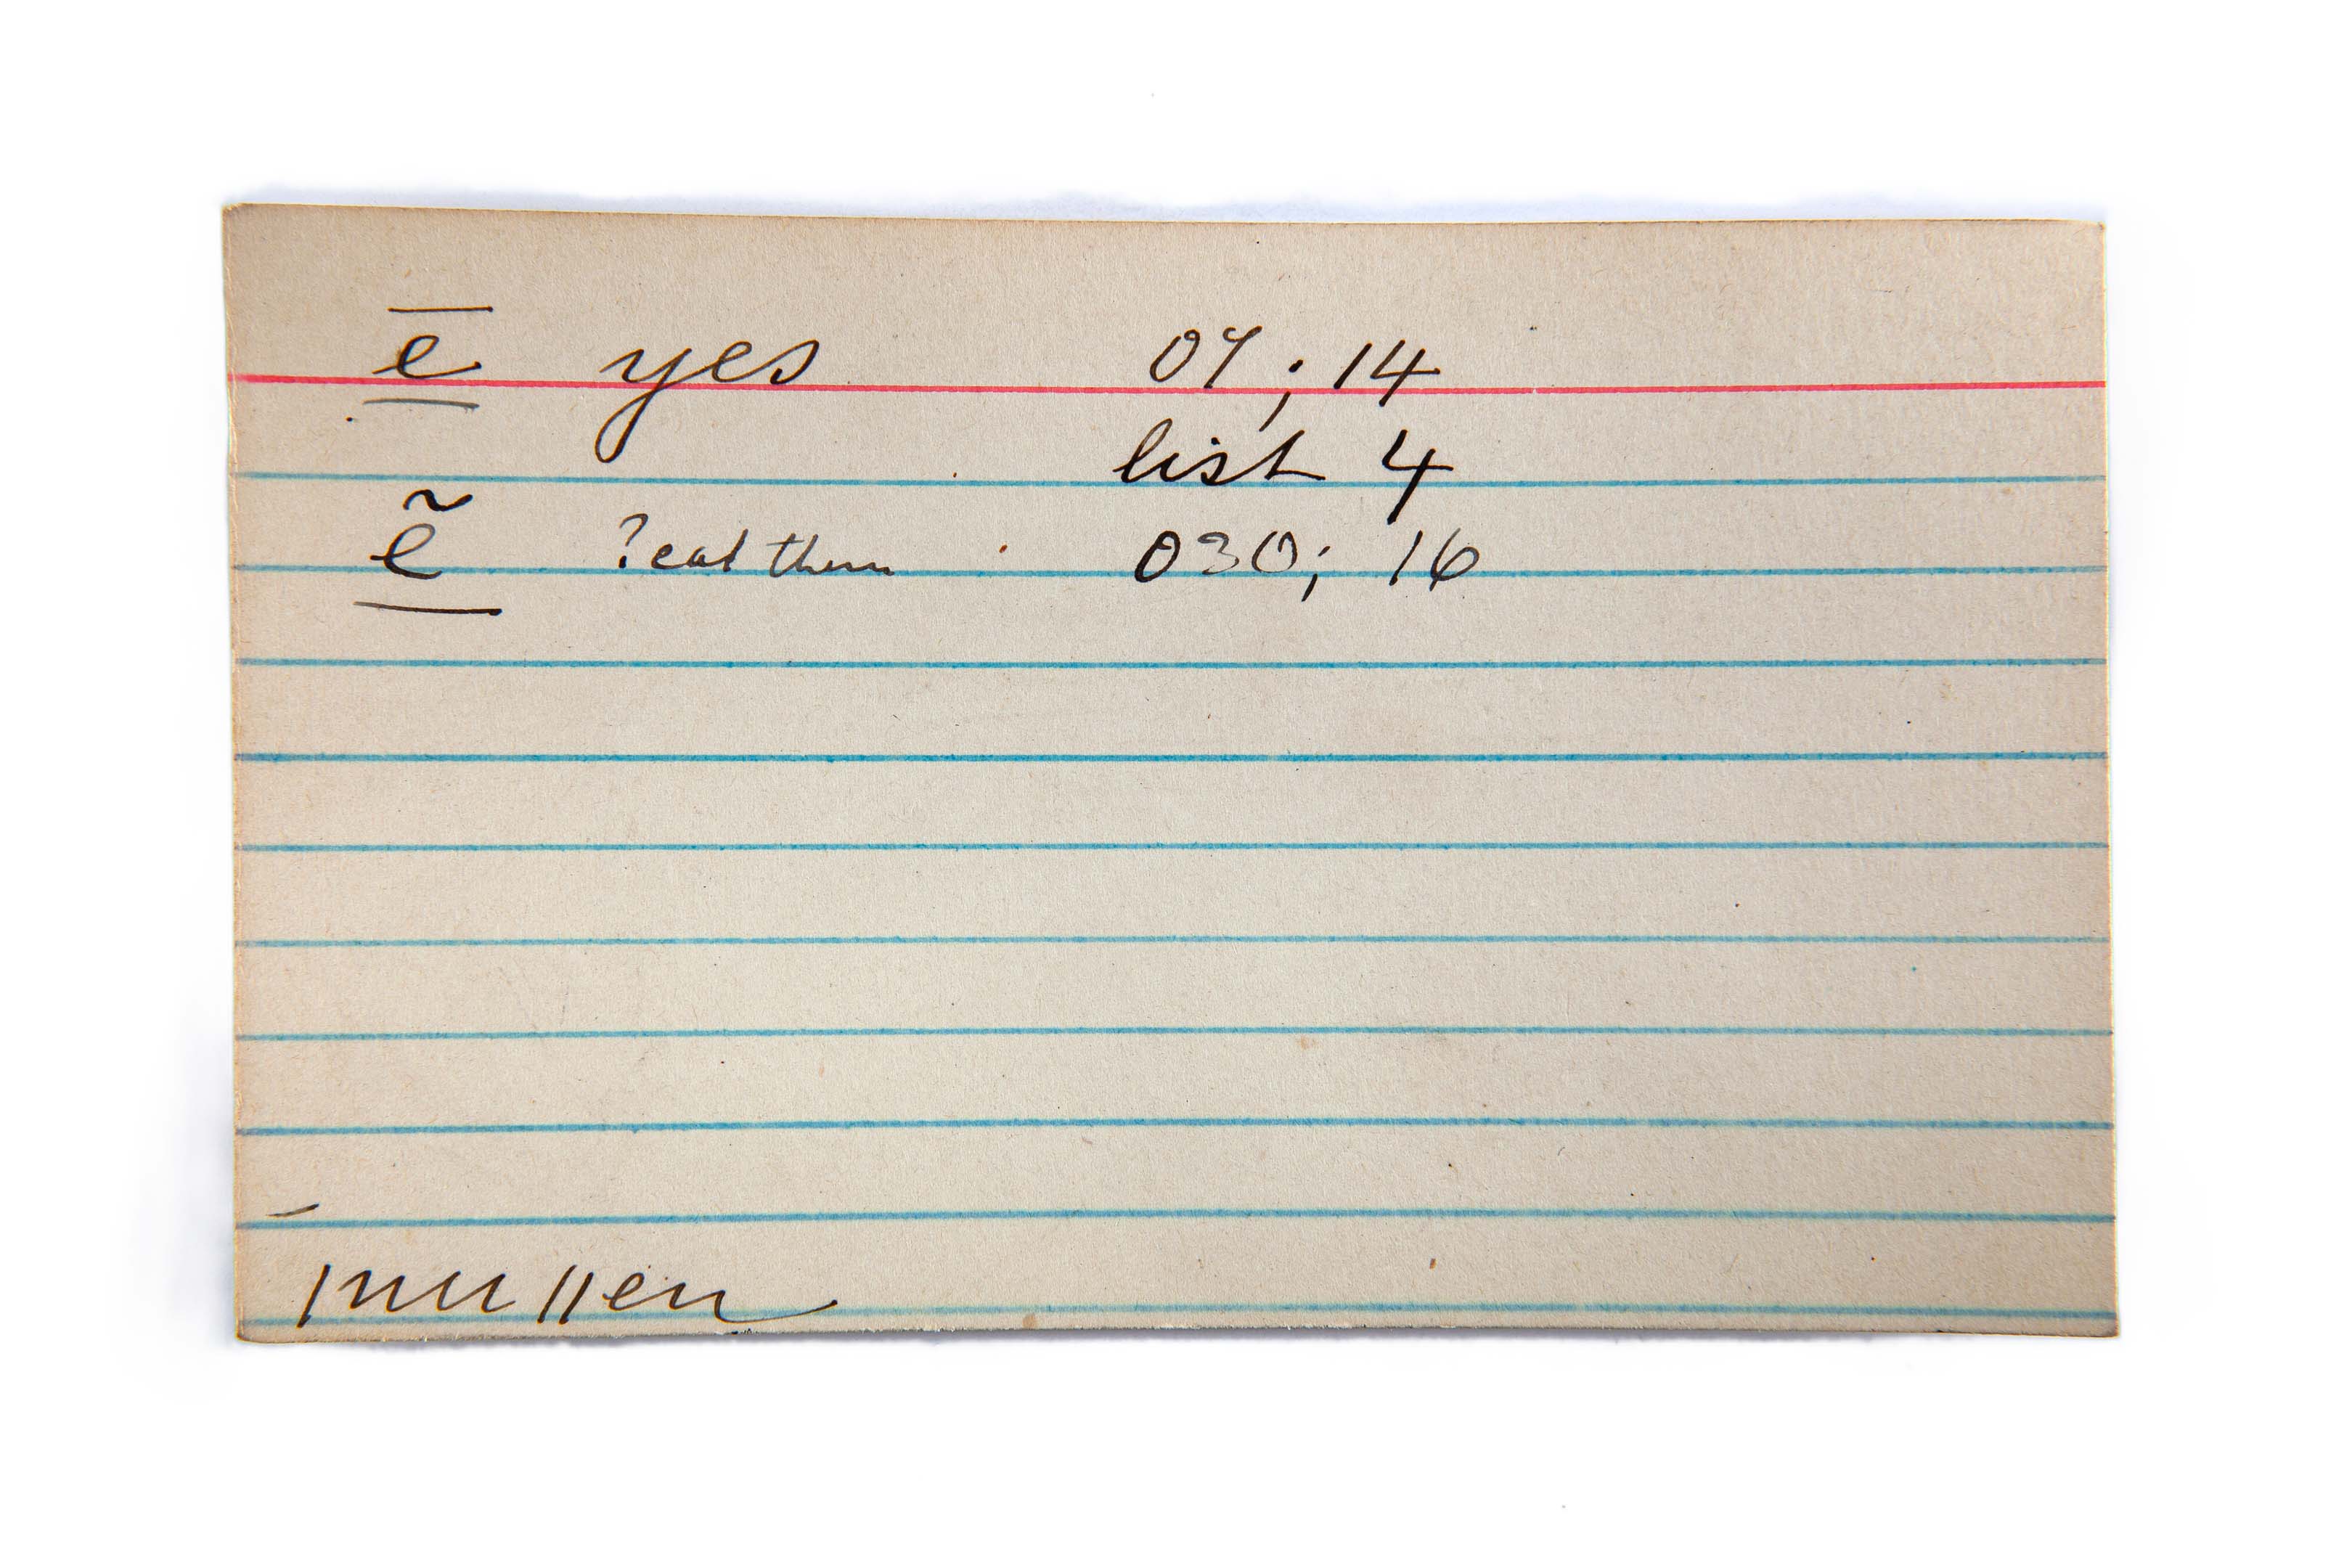 ē yes 09; 14
list 4
ẽ ?eat them 030; 16
mullen